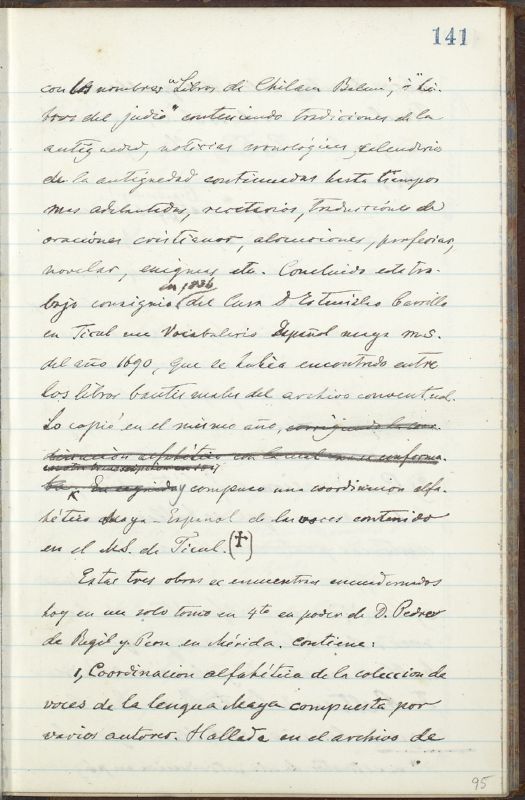 141
con los nombres "Libros de Chilam Balam", ó "Li-
bros del judio" conteniendo tradiciones de la
antigüedad, noticias cronológicas, calendario
de la antigüedad continuadas hasta tiempos
mas adelantados, recetarios, traducciones de
oraciones cristianas, alocuciones, profecias,
novelas, enigmas etc. Concluido este tra-
en 1836
bajo consiguió del Cura D. Estanislao Carrillo
en Ticul un Vocabulario Español maya ms.
del año 1690, que se habia encontrado entre
los libros bautismales del archivo conventual.
Lo copió en el mismo año, corrigiendo la coor-
dinacion alfabética con la cual no se conforma-
ba. En seguida y compuso una coordinacion alfa-
bética Maya-Español de las voces contenidas
en el MS. de Ticul. (†)
Estas tres obras se encuentran encuadernadas
hoy en un solo tomo en 4to en poder de D. Pedro
de Regil y Peon en Mérida. Contiene:
1, Coordinacion alfabética de la coleccion de
voces de la lengua Maya compuesta por
varios autores. Hallada en el archivo de
95